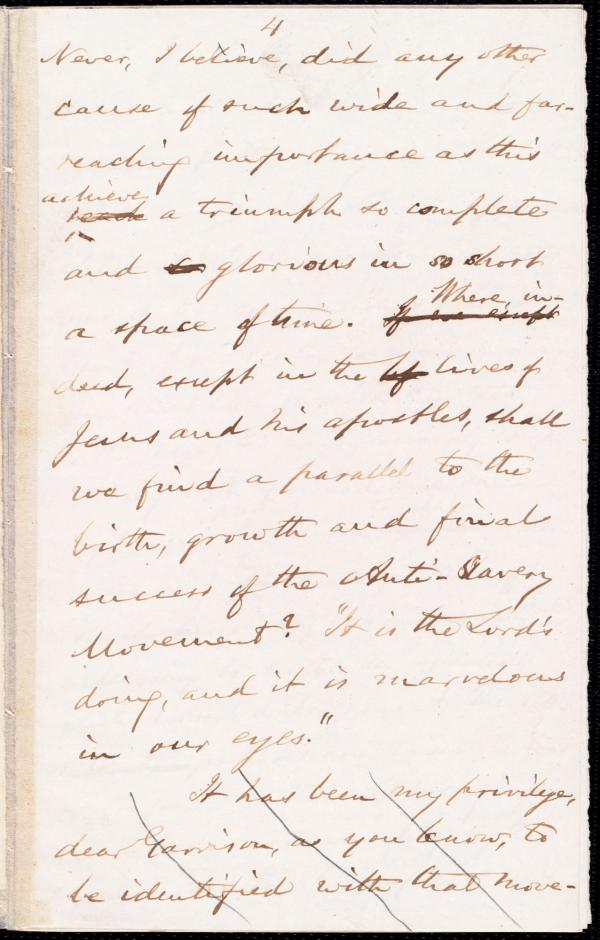 4
Never, I believe, did any other
cause of such wide and far-
reaching importance as this
achieve
reach a triumph so complete
and so glorious in so short
Where, in-
a space of time. If we except
deed, except in the lives of
Jesus and his apostles, shall
we find a parallel to the
birth, growth and final
success of the Anti-Slavery
Movement? "It is the Lord's
doing, and it is marvelous
in our eyes."
It has been my privilege,
dear Garrison, as you know, to
be identified with that move-